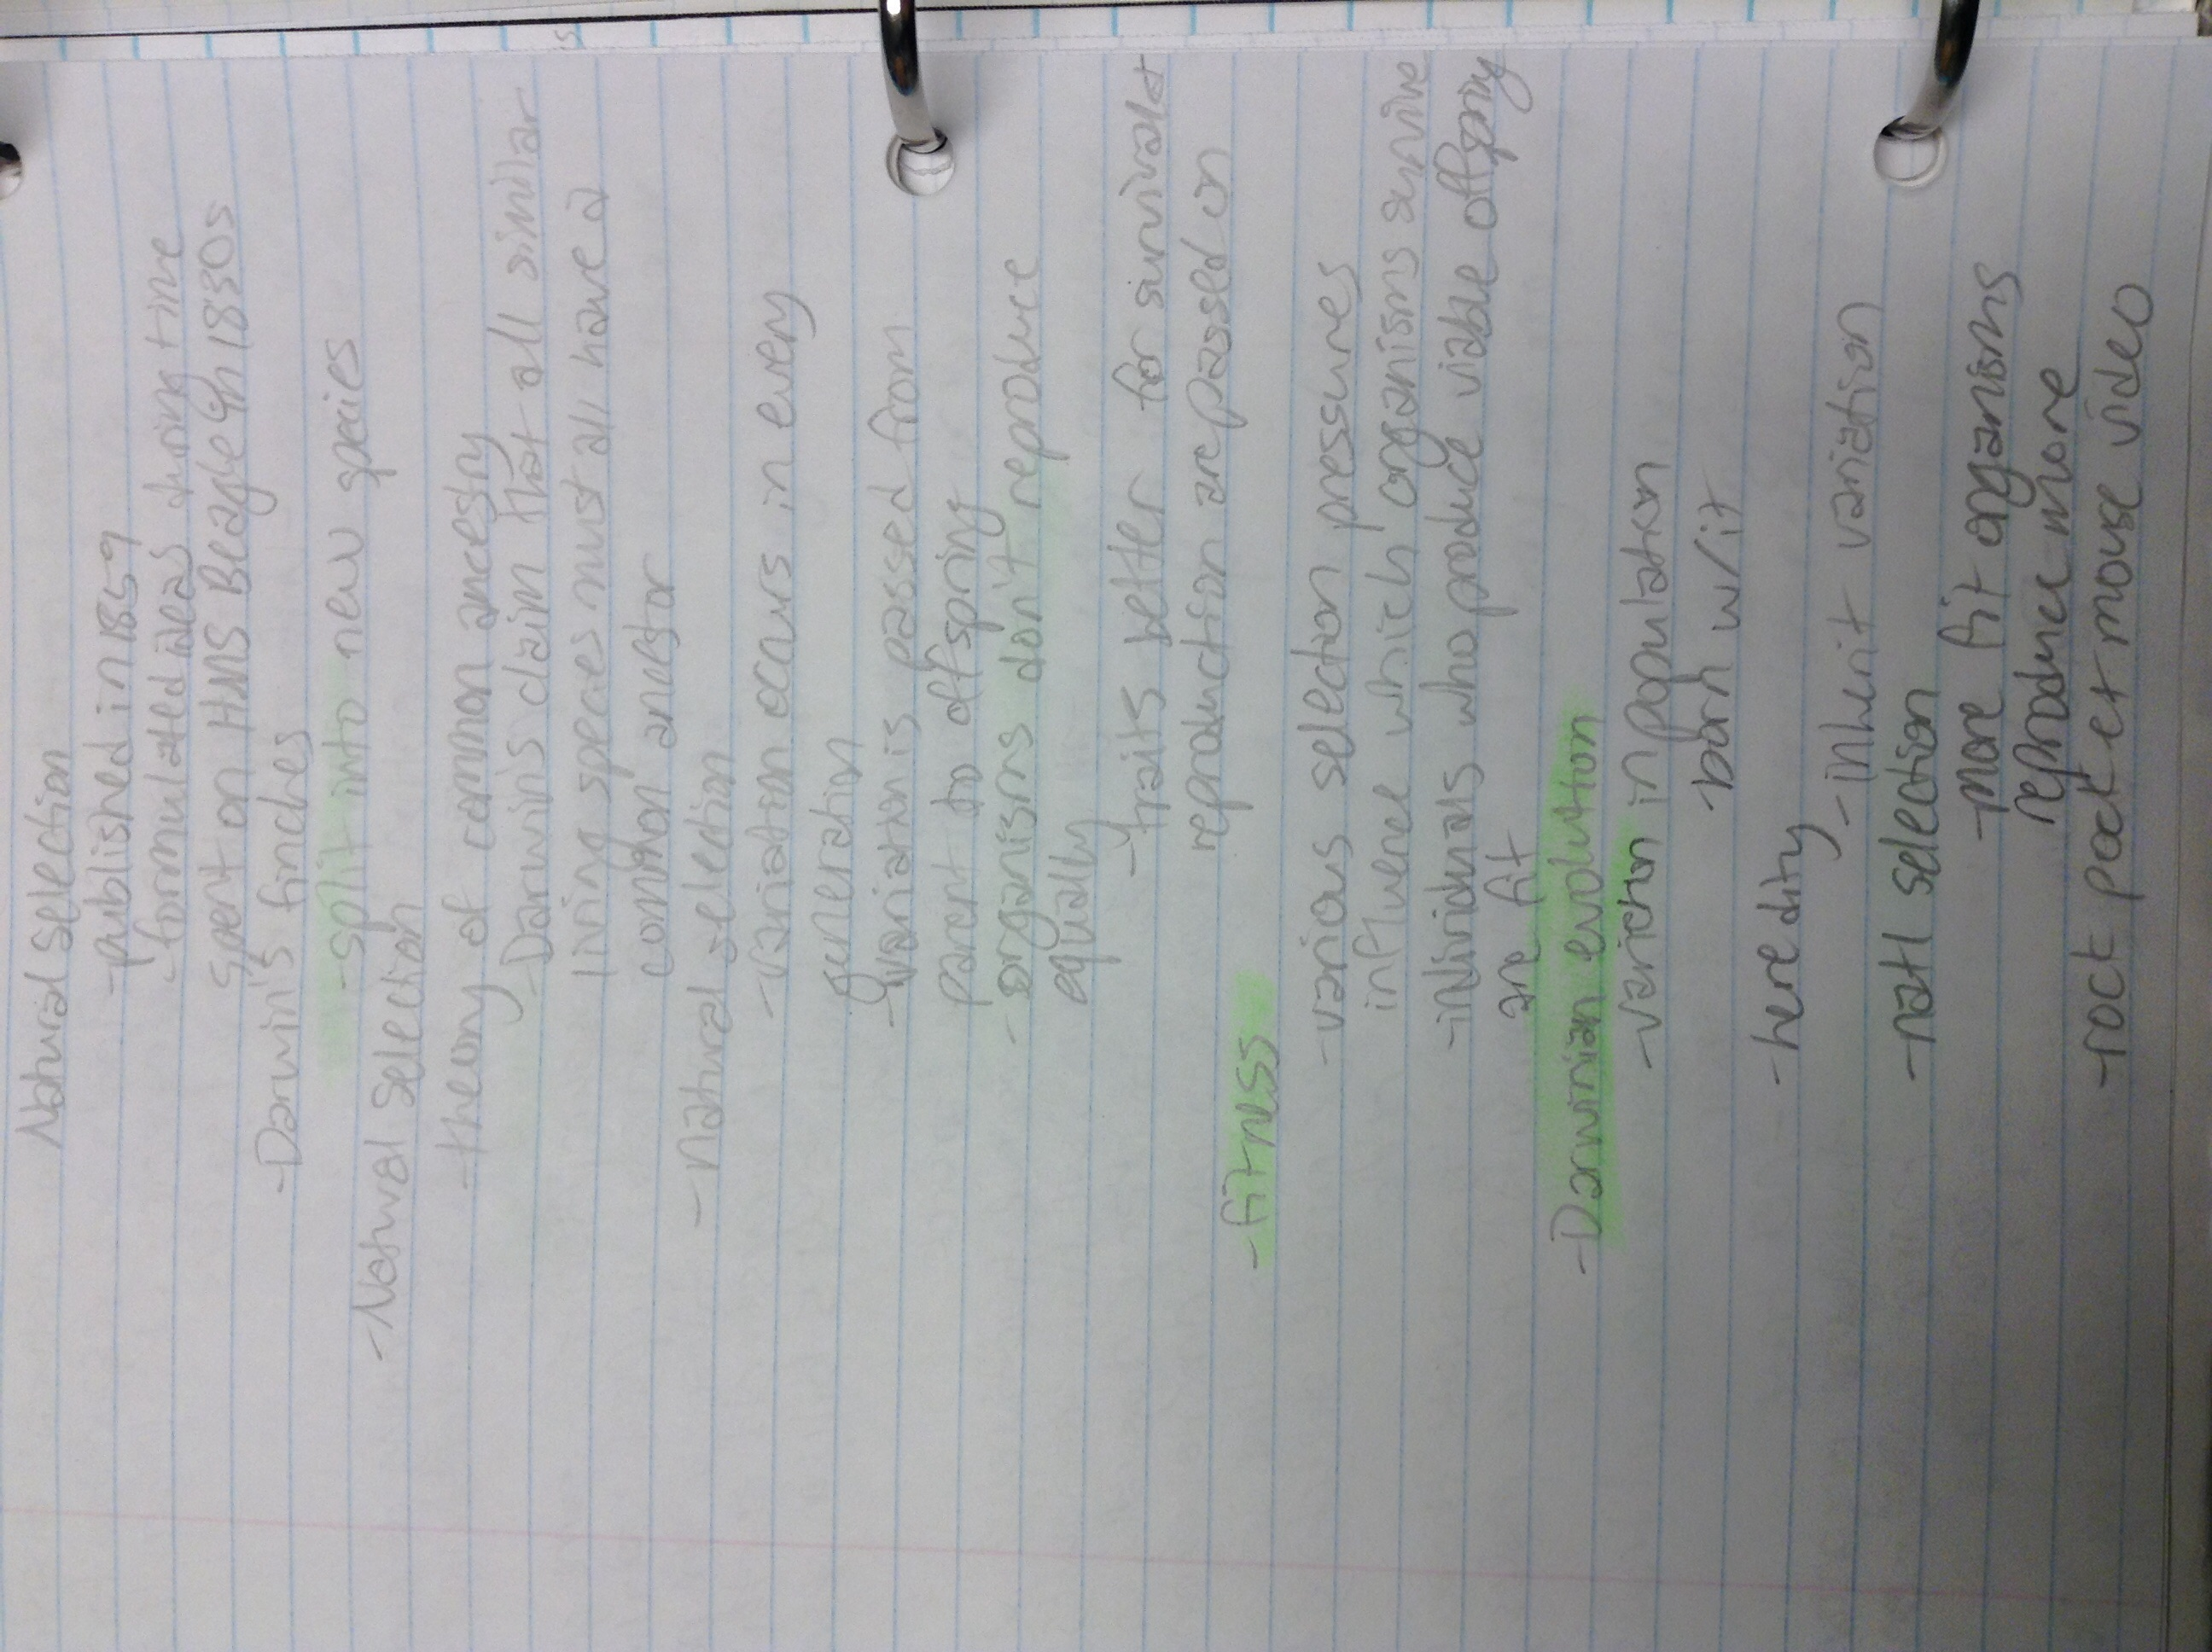 Natural Selection
-published in 1859
-formulated ideas during time
spent on HMS Beagle in 1830s
-Darwin's finches
-split into new species
-Natural Selection
-theory of common ancestry
-Darwin's claim that all similar
living species must all have a
common ancestor
-natural selection
-variation occurs in every
generation
-variation is passed from
parent to offspring
-organisms don't reproduce
equally
-traits better for survival &
reproduction are passed on
-fitness
-various selection pressures
influence which organisms survive
-individuals who produce viable offspring
are fit
-Darwinian evolution
-variation in population
-born w/it
-heredity
-inherit variation
-natl selection
-more fit organisms
reproduce more
-rock pocket mouse video